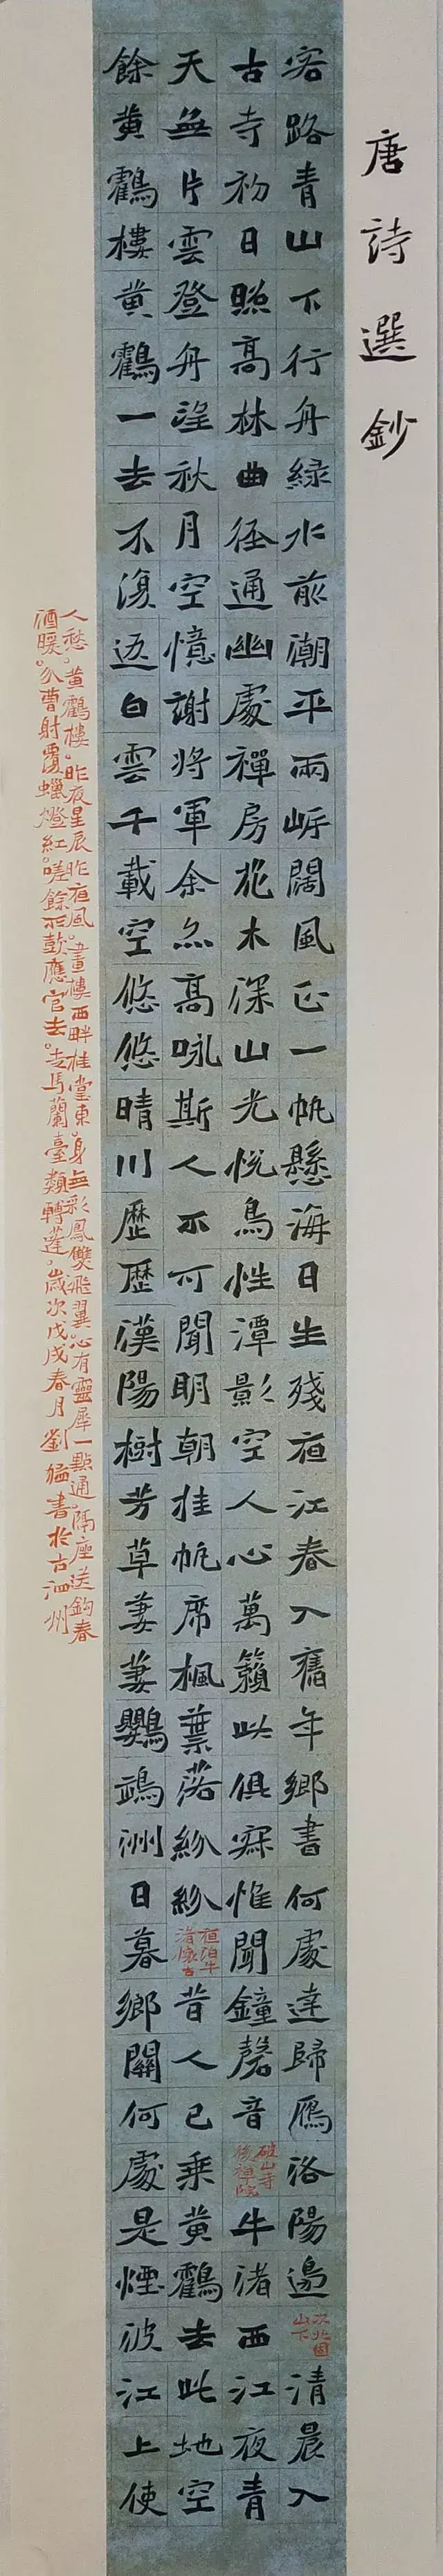 唐詩選鈔
客路青山下行舟緑水前潮平兩岸闊風正一帆懸海日生殘夜江春入舊年鄉書何處達歸鴈洛陽邊
次北固
山下
清晨入
古寺初日照高林曲徑通幽處禪房花木深山光悅鳥性潭影空人心萬籟此俱寂惟聞鐘磬音
破山寺
後禪院
牛渚西江夜青
天無片雲登舟望秋月空憶謝將軍余亦高咏斯人不可聞明朝挂帆席楓葉落紛紛
夜泊牛
渚懷古
昔人已乘黄鶴去此地空
餘黄鶴樓黄鶴一去不復返白雲千載空悠悠晴川歷歷漢陽樹芳草萋萋鸚鵡洲日暮鄉關何處是煙波江上使
人愁。黄鶴樓。昨夜星辰昨夜風。畫樓西畔桂堂東。身無彩鳳雙飛翼。心有靈犀一點通。隔座送鈎春
酒暖。分曹射覆蠟燈紅。嗟餘聽鼓應官去。走馬蘭臺類轉蓬。歲次戊戌春月劉猛書於古泗州